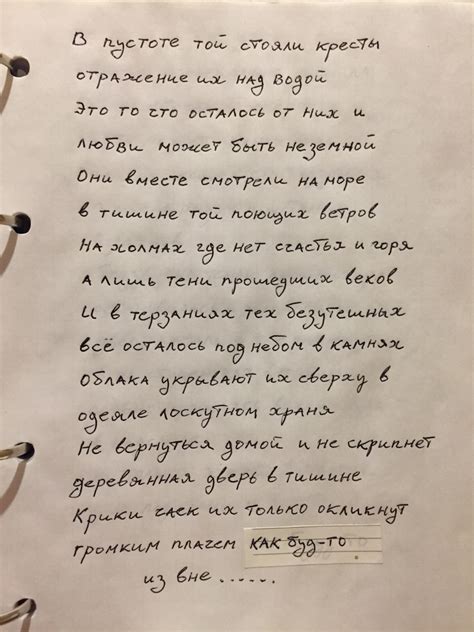 В пустоте той стояли кресты
отражение их над водой
Это то что осталось от них и
любви может быть неземной
Они вместе смотрели на море
в тишине той поющих ветров
На холмах где нет счастья и горя
А лишь тени прошедших веков
И в терзаниях тех безутешных
всё осталось под небом в камнях
Облака укрывают их сверху в
одеяле лоскутном храня
Не вернуться домой и не скрипнет
деревянная дверь в тишине
Крики чаек их только окликнут
громким плачем как буд-то
из вне......